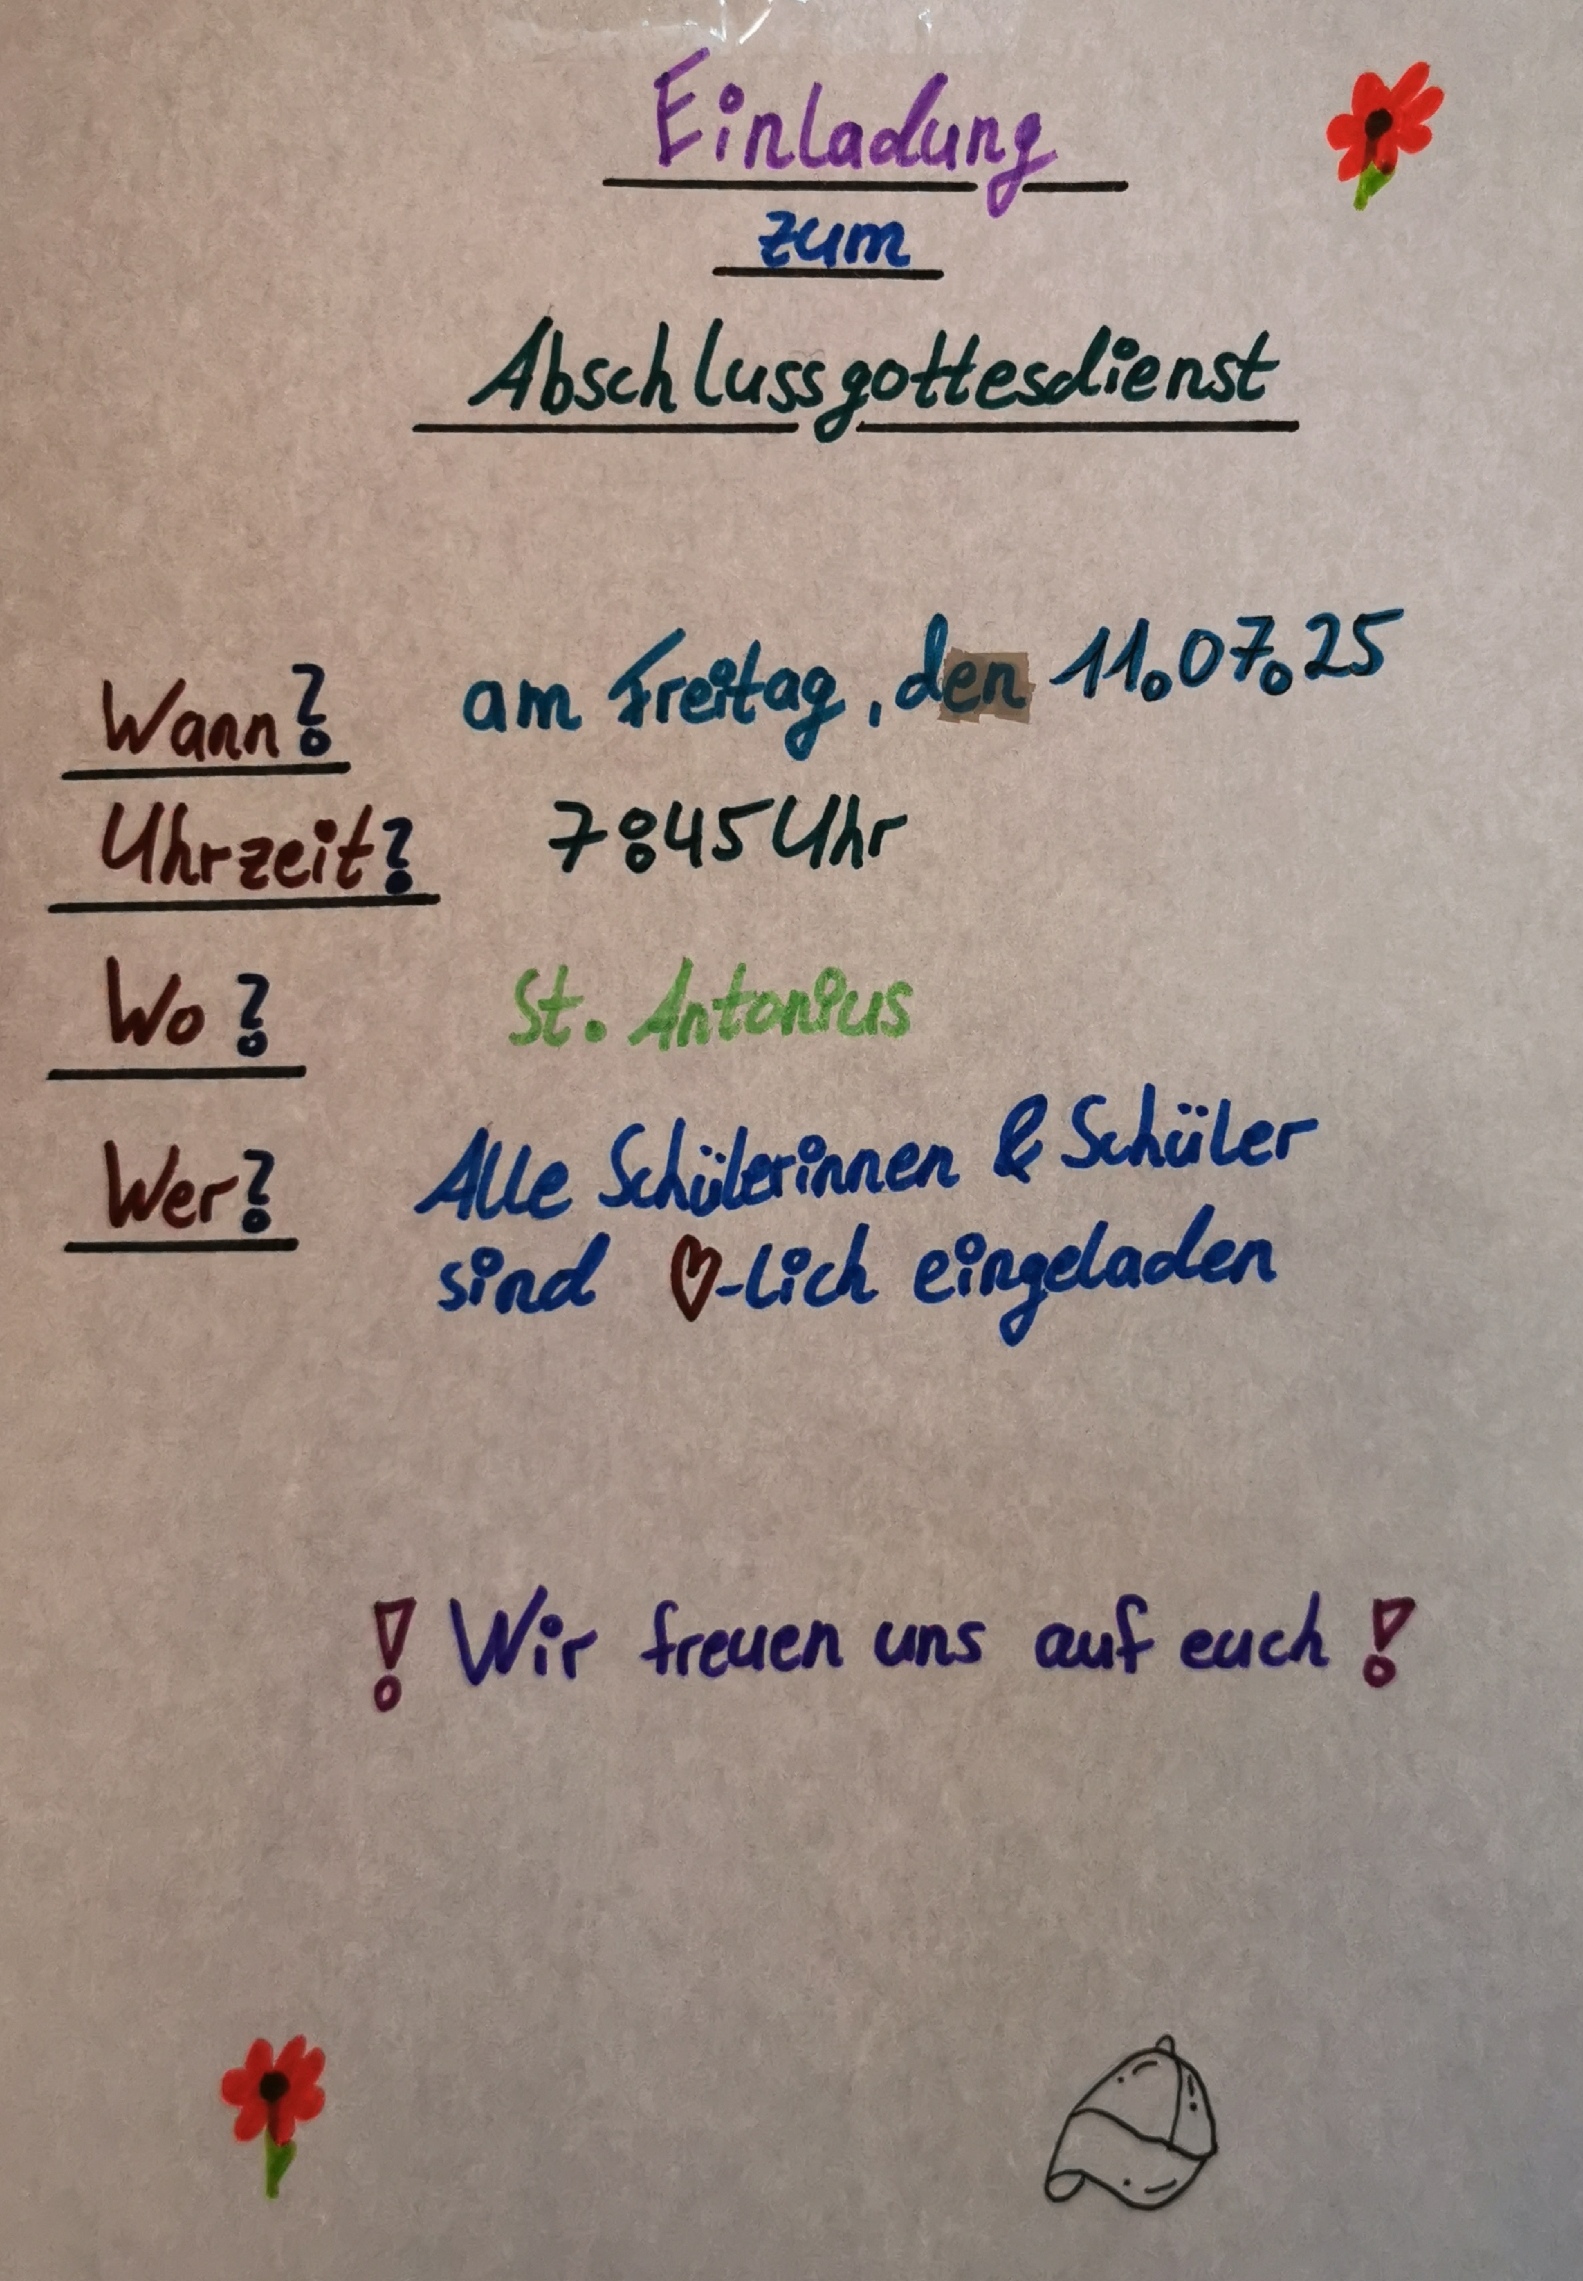 Einladung
zum
Abschlussgottesdienst
Wann? am Freitag, den 11.07.25
Uhrzeit? 7:45 Uhr
Wo? St. Antonius
Wer? Alle Schülerinnen & Schüler
sind ♡-lich eingeladen
! Wir freuen uns auf euch !